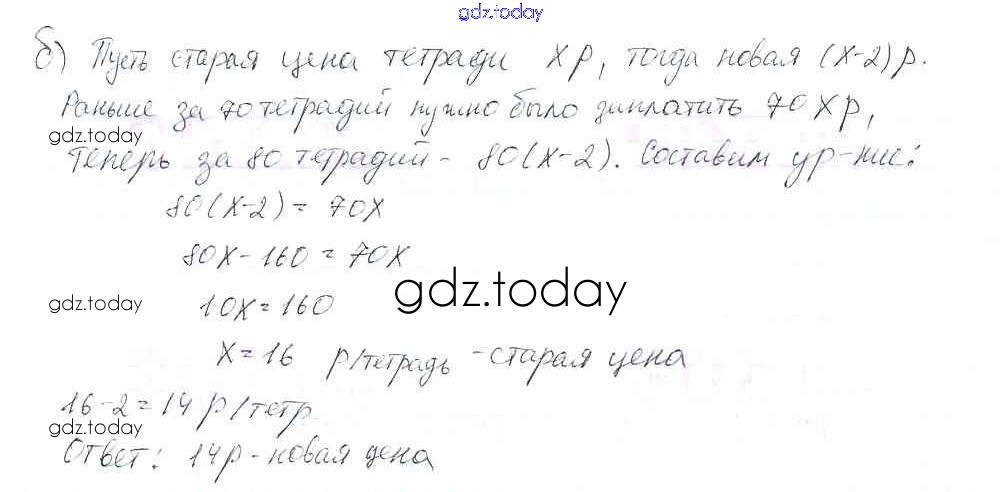 gdz.today
б) Пусть старая цена тетради x р, тогда новая (x-2) р.
Раньше за 70 тетрадий нужно было заплатить 70x р,
gdz.today
теперь за 80 тетрадий - 80(x-2). Составим ур-ние:
80(x-2) = 70x
80x - 160 = 70x
gdz.today
gdz.today
10x = 160
x = 16 р/тетрадь - старая цена
16-2 = 14 р/тетр
gdz.today
Ответ: 14р - новая цена